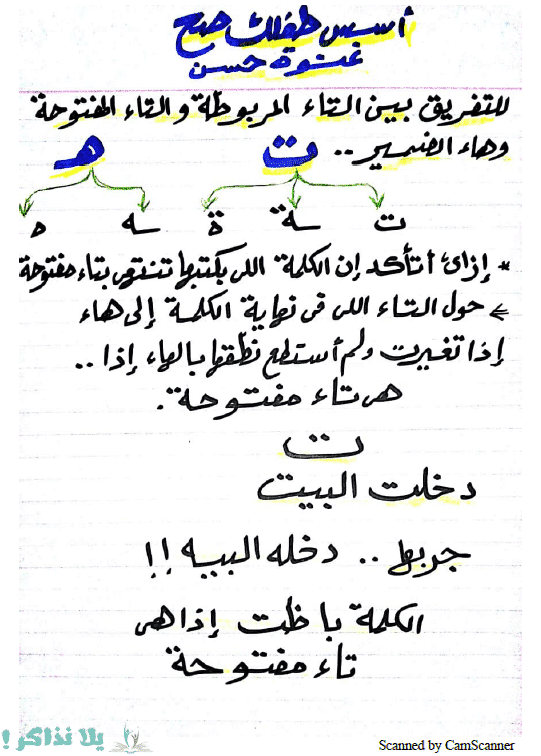 أسس طفلك صح
غنوة حسن
للتفريق بين التاء المربوطة والتاء المفتوحة
وهاء الضمير ..
ت ه
ت ـة ة ـه ه
* إزاى أتأكد إن الكلمة اللى بكتبها تنتهى بتاء مفتوحة
حول التاء اللى فى نهاية الكلمة إلى هاء
إذا تغيرت ولم أستطع نطقها بالهاء إذا ..
هى تاء مفتوحة.
ت
دخلت البيت
جربها .. دخله البيه !!
الكلمة باظت إذا هى
تاء مفتوحة
يلا نذاكر !
Scanned by CamScanner